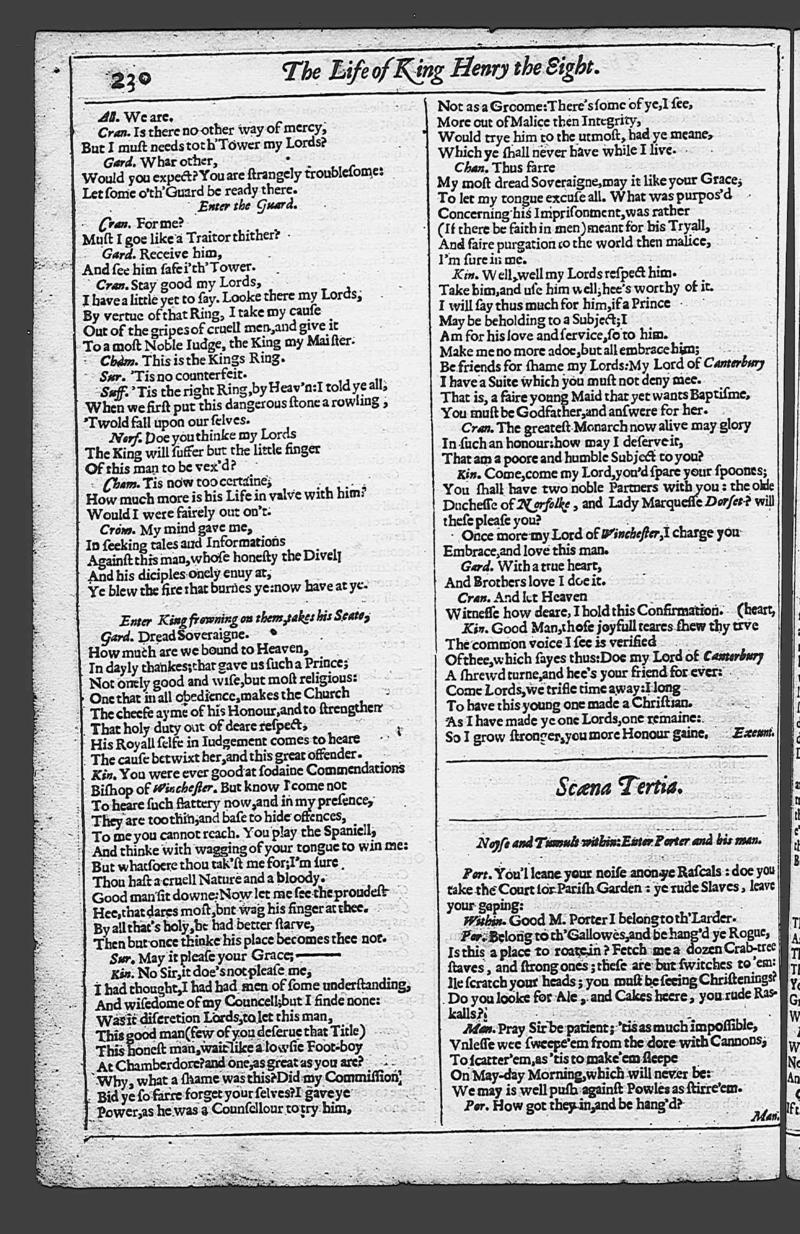 230
The Life of King Henry the Eight.
All. We are.
Cran. Is there no other way of mercy,
But I muſt needs to th'Tower my Lords?
Gard. What other,
Would you expect? You are ſtrangely troubleſome:
Let ſome o'th'Guard be ready there.
Enter the Guard.
Cran. For me?
Muſt I goe like a Traitor thither?
Gard. Receive him,
And ſee him ſafe i'th'Tower.
Cran. Stay good my Lords,
I have a little yet to ſay. Looke there my Lords,
By vertue of that Ring, I take my cauſe
Out of the gripes of cruell men, and give it
To a moſt Noble Iudge, the King my Maiſter.
Cham. This is the Kings Ring.
Sur. 'Tis no counterfeit.
Suff. 'Tis the right Ring, by Heav'n: I told ye all,
When we firſt put this dangerous ſtone a rowling,
'Twold fall upon our ſelves.
Norf. Doe you thinke my Lords
The King will ſuffer but the little finger
Of this man to be vex'd?
Cham. Tis now too certaine;
How much more is his Life in valve with him?
Would I were fairely out on't.
Crom. My mind gave me,
In ſeeking tales and Informations
Againſt this man, whoſe honeſty the Divell
And his diciples onely enuy at,
Ye blew the fire that burnes ye: now have at ye.
Enter King frowning on them, takes his Seate,
Gard. Dread Soveraigne.
How much are we bound to Heaven,
In dayly thankes; that gave us ſuch a Prince;
Not onely good and wiſe, but moſt religious:
One that in all obedience, makes the Church
The cheefe ayme of his Honour, and to ſtrengthen
That holy duty out of deare reſpect,
His Royall ſelfe in Iudgement comes to heare
The cauſe betwixt her, and this great offender.
Kin. You were ever good at ſodaine Commendations
Biſhop of Wincheſter. But know I come not
To heare ſuch flattery now, and in my preſence,
They are too thin, and baſe to hide offences,
To me you cannot reach. You play the Spaniell,
And thinke with wagging of your tongue to win me:
But whatſoere thou tak'ſt me for; I'm ſure
Thou haſt a cruell Nature and a bloody.
Good man ſit downe: Now let me ſee the proudeſt
Hee, that dares moſt, bnt wag his finger at thee.
By all that's holy, he had better ſtarve,
Then but once thinke his place becomes thee not.
Sur. May it pleaſe your Grace;———
Kin. No Sir, it doe's not pleaſe me,
I had thought, I had had men of ſome underſtanding,
And wiſedome of my Councell; but I finde none:
Was it diſcretion Lords, to let this man,
This good man (few of you deſerue that Title)
This honeſt man, wait like a lowſie Foot-boy
At Chamberdore? and one, as great as you are?
Why, what a ſhame was this? Did my Commiſſion
Bid ye ſo farre forget your ſelves? I gave ye
Power, as he was a Counſellour to try him,
Not as a Groome: There's ſome of ye, I ſee,
More out of Malice then Integrity,
Would trye him to the utmoſt, had ye meane,
Which ye ſhall never have while I live.
Chan. Thus farre
My moſt dread Soveraigne, may it like your Grace,
To let my tongue excuſe all. What was purpos'd
Concerning his Impriſonment, was rather
(If there be faith in men) meant for his Tryall,
And faire purgation to the world then malice,
I'm ſure in me.
Kin. Well, well my Lords reſpect him.
Take him, and uſe him well; hee's worthy of it.
I will ſay thus much for him, if a Prince
May be beholding to a Subject; I
Am for his love and ſervice, ſo to him.
Make me no more adoe, but all embrace him;
Be friends for ſhame my Lords: My Lord of Canterbury
I have a Suite which you muſt not deny mee.
That is, a faire young Maid that yet wants Baptiſme,
You muſt be Godfather, and anſwere for her.
Cran. The greateſt Monarch now alive may glory
In ſuch an honour: how may I deſerve it,
That am a poore and humble Subject to you?
Kin. Come, come my Lord, you'd ſpare your ſpoones;
You ſhall have two noble Partners with you: the olde
Ducheſſe of Norfolke, and Lady Marqueſſe Dorſet? will
theſe pleaſe you?
Once more my Lord of Wincheſter, I charge you
Embrace, and love this man.
Gard. With a true heart,
And Brothers love I doe it.
Cran. And let Heaven
Witneſſe how deare, I hold this Confirmation. (heart,
Kin. Good Man, thoſe joyfull teares ſhew thy trve
The common voice I ſee is verified
Of thee, which ſayes thus: Doe my Lord of Canterbury
A ſhrewd turne, and hee's your friend for ever:
Come Lords, we trifle time away: I long
To have this young one made a Chriſtian.
As I have made ye one Lords, one remaine:
So I grow ſtronger, you more Honour gaine. Exeunt.
Scæna Tertia.
Noyſe and Tumult within: Enter Porter and his man.
Port. You'l leave your noiſe anon ye Raſcals: doe you
take the Court for Pariſh Garden: ye rude Slaves, leave
your gaping:
Within. Good M. Porter I belong to th'Larder.
Por. Belong to th'Gallowes, and be hang'd ye Rogue,
Is this a place to roare in? Fetch me a dozen Crab-tree
ſtaves, and ſtrong ones; theſe are but ſwitches to 'em:
Ile ſcratch your heads; you muſt be ſeeing Chriſtenings?
Do you looke for Ale, and Cakes heere, you rude Raſ-
kalls?
Man. Pray Sir be patient; 'tis as much impoſſible,
Vnleſſe wee ſweepe'em from the dore with Cannons,
To ſcatter'em, as 'tis to make'em ſleepe
On May-day Morning, which will never be:
We may is well puſh againſt Powles as ſtirre'em.
Por. How got they in, and be hang'd?
Man.